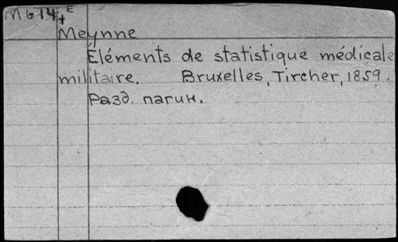 М614 E
+
Meynne
Eléments de statistique médicale
militaire. Bruxelles, Tircher, 1859.
Разд. пагин.